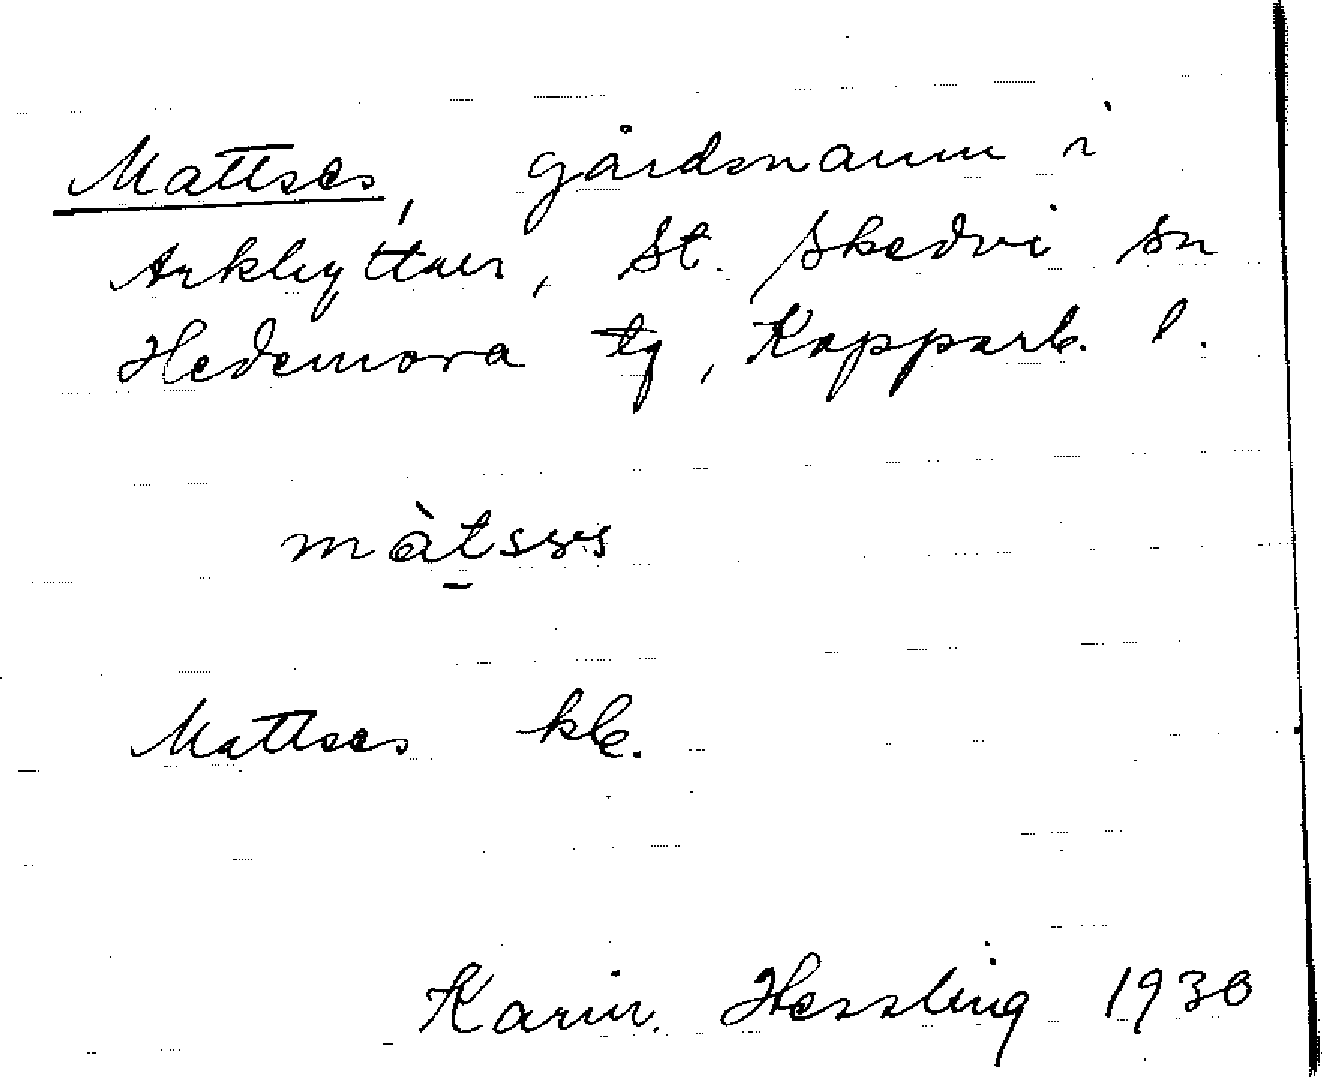 Mattses, gårdsnamn i
Arkhyttan, St. Skedvi sn
Hedemora tg, Kopparb. l.
màt̠sɜs
Mattses kle.
Karin Hessling 1930